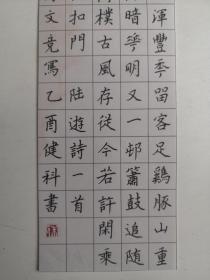 渾豐秊留客足鷄豚山重
暗華明又一邨簫鼓追隨
樸古風存從今若許閑乘
扣門 陸遊詩一首
文竟寫乙酉健科書